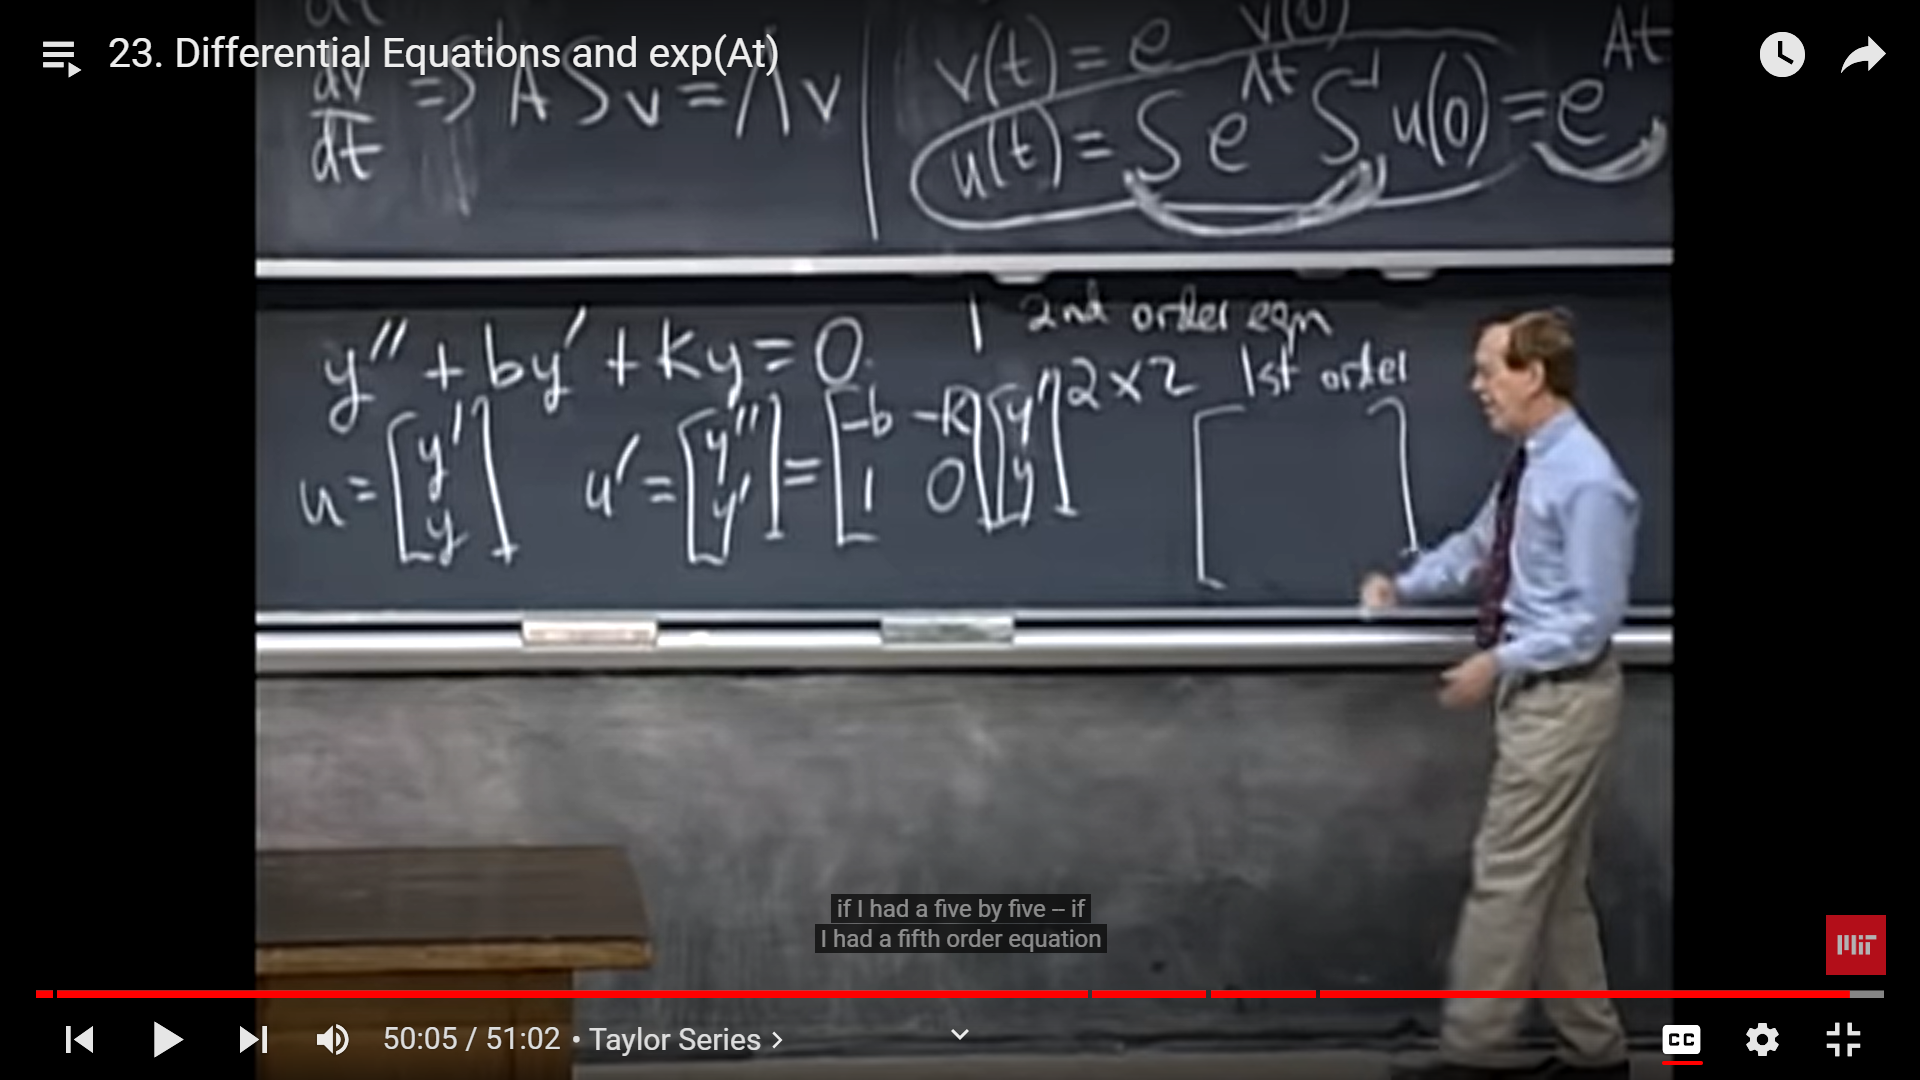 23. Differential Equations and exp(At)
dv/dt => A S v = Λ v
v(t) = e v(0)
u(t) = S e^Λt S^-1 u(0) = e^At
y'' + by' + ky = 0.
1 2nd order eqn
2 x 2 1st order
u = [y' y] u' = [y'' y'] = [-b -k 1 0] [y' y]
if I had a five by five – if
I had a fifth order equation
MIT
50:05 / 51:02 • Taylor Series >
CC